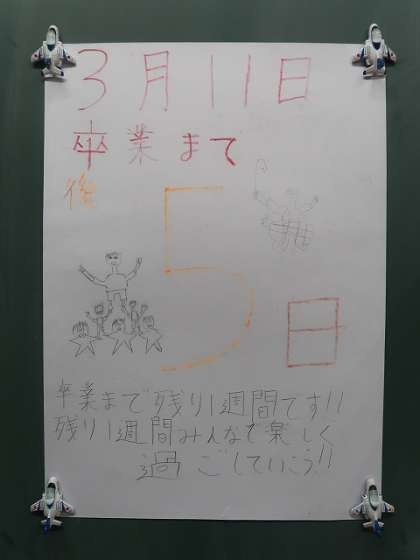 3月11日
卒業まで
後
5日
卒業まで残り1週間です!!
残り1週間みんなで楽しく
過ごしていこう!!